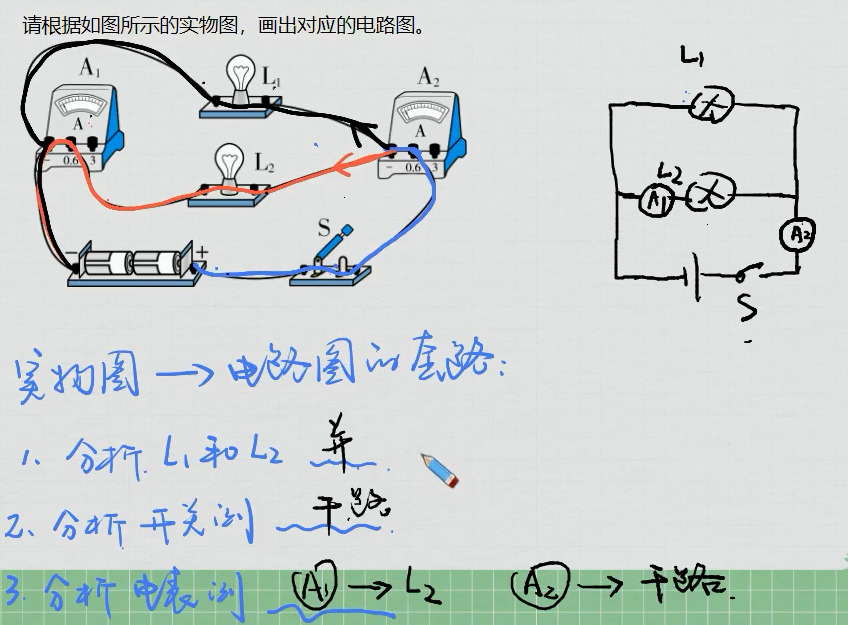 请根据如图所示的实物图，画出对应的电路图。
A₁ L₁ A₂
A A
- 0.6 3 L₂ - 0.6 3
S
- +
L₁
L₂
A₁
A₂
S
实物图 → 电路图的套路：
1、分析 L₁ 和 L₂ 并．
2、分析开关测 干路．
3、分析电表测 A₁ → L₂ A₂ → 干路．